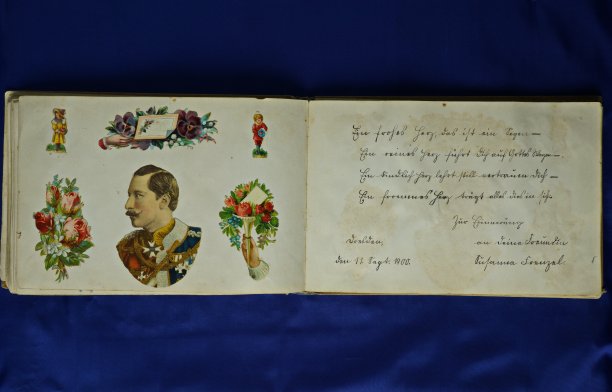 Ein frohes Herz, das ist ein Segen –
Ein reines Herz führt dich auf Gottes Wegen –
Ein kindlich Herz lehrt still vertrauen dich –
Ein frommes Herz trägt alles dies in sich.
Zur Erinnerung
Dresden, an deine Freundin
den 17. Sept. 1900. Susanna Frenzel.